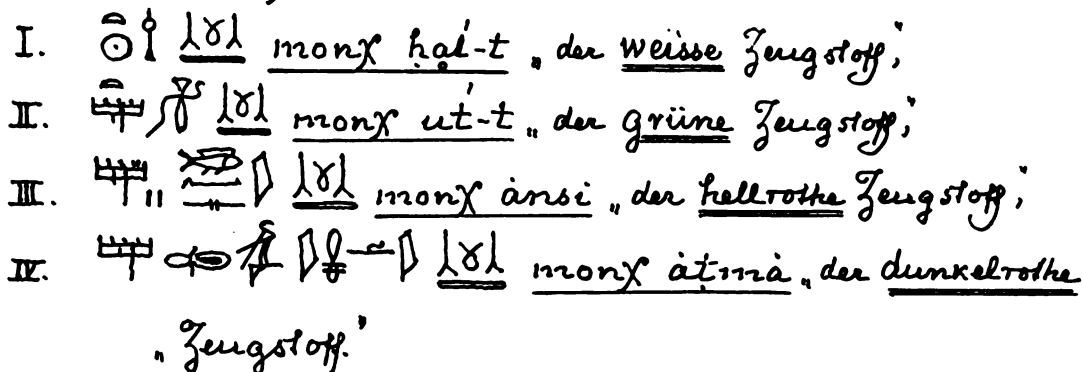 I. monχ ḥaí-t „der weisse Zeugstoff,“
II. monχ ut́-t „der grüne Zeugstoff,“
III. monχ ȧnsi „der hellrothe Zeugstoff,“
IV. monχ ȧṭmȧ „der dunkelrothe
„Zeugstoff.“